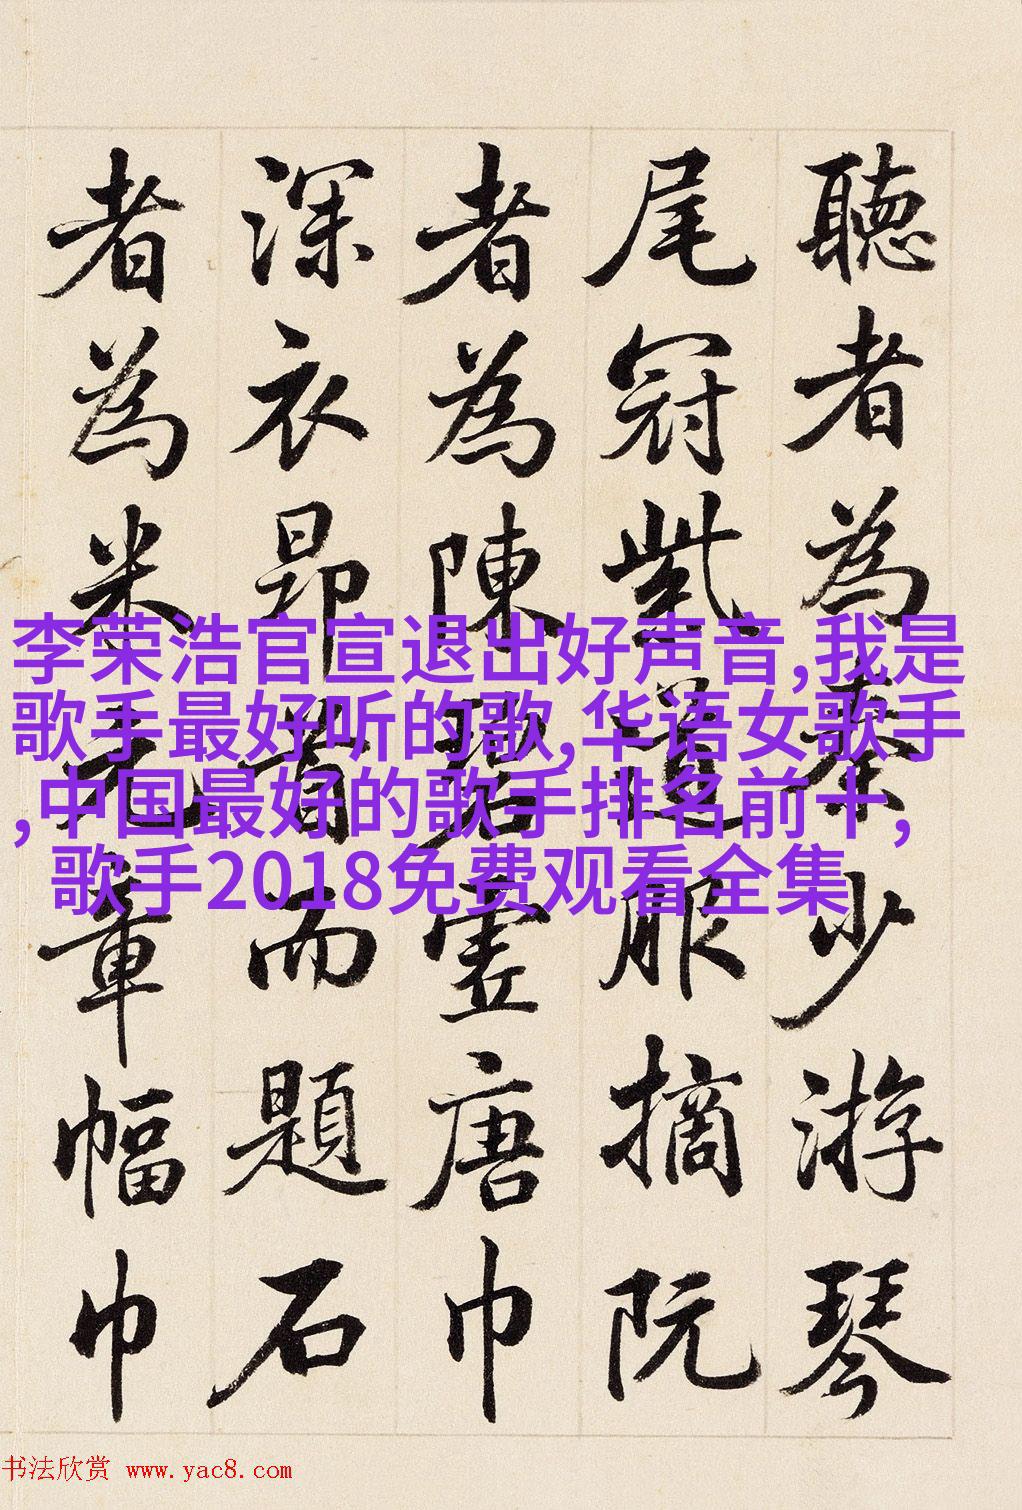 聽者為秦少游琴
尾冠紫道服摘阮
者為陳碧虛唐巾
深衣昂首而題石
者為米元章幅巾
李荣浩官宣退出好声音,我是
歌手最好听的歌,华语女歌手
,中国最好的歌手排名前十,
歌手2018免费观看全集
书法欣赏 www.yac8.com